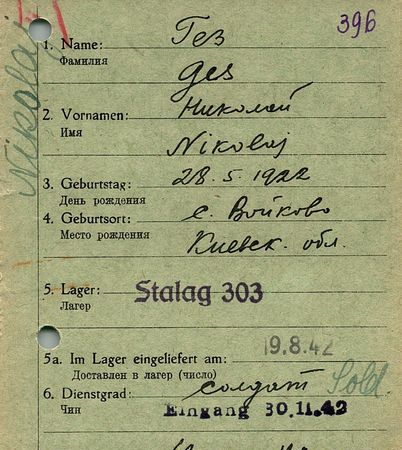 396
Nikolaj
1. Name: Гез
Фамилия
Ges
2. Vornamen: Николай
Имя
Nikolaj
3. Geburtstag: 28.5.1922
День рождения
4. Geburtsort: с. Войково
Место рождения
Киевск. обл.
5. Lager: Stalag 303
Лагер
5a. Im Lager eingeliefert am: 19.8.42
Доставлен в лагер (число)
6. Dienstgrad: солдат Sold.
Чин
Eingang 30.11.42